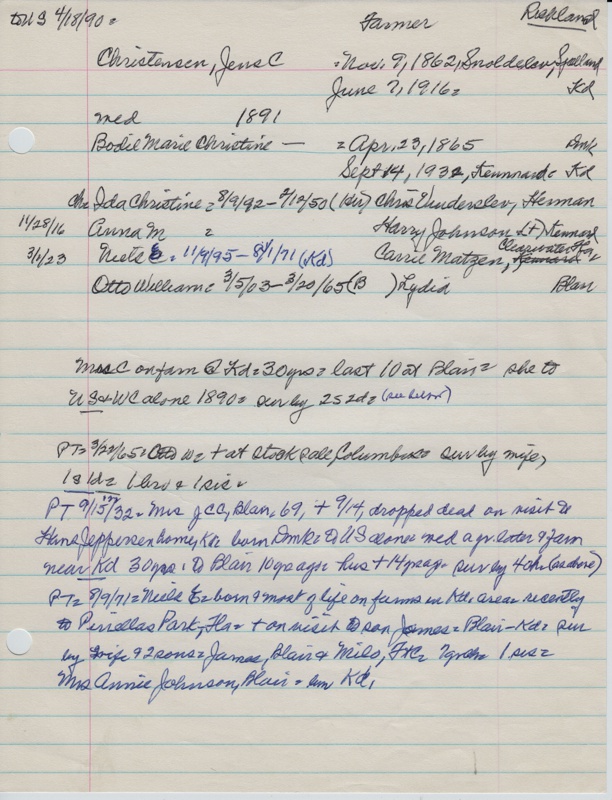 to US 4/18/90 = Farmer Richland
Christensen, Jens C = Nov. 9, 1862, Snoldelev, Sjælland
June 7, 1916 = Kd
med 1891
Bodie Marie Christine — = Apr. 23, 1865 Dmk
Sept 14, 1932, Kennard = Kd
ch = Ida Christine = 8/9/92 - 2/12/50 ( ) Chris Wunderslev, Herman
11/28/16 Anna M = Harry Johnson Lt) Kennard
Clearwater Fla
3/1/23 Niels E = 11/9/95 - 8/1/71 (Kd) Carrie Matzen, Kennard
Otto William = 3/5/03 - 3/20/65 (B ) Lydia Blair
Mrs C on farm @ Kd = 30 yrs = last 10 at Blair = she to
US & WC alone 1890 = sur by 2s 2d = (see below)
PT = 3/22/65 = Otto W = + at stock sale, Columbus = sur by wife,
1s 1d = 1 bro & 1 sis =
PT 9/15/32 = Mrs JCC, Blair, 69, + 9/14, dropped dead on visit to
Hans Jeppersen home, Kd = born Dmk = to US alone = med a yr later & farm
near Kd 30 yrs = to Blair 10 yrs ago = hus + 14 yrs ago = sur by 4 ch (as above)
PT = 8/9/71 = Niels E = born & most of life on farms in Kd. area = recently
to Pinellas Park, Fla = + on visit to son James = Blair - Kd = sur
by wife & 2 sons = James, Blair & Milo, = 7 grch = 1 sis =
Mrs Annie Johnson, Blair = Kd.